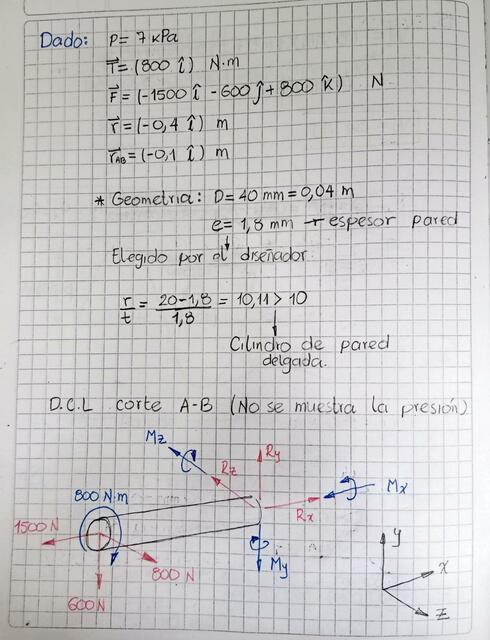 Dado: P= 7 kPa
T⃗= (800 î) N·m
F⃗ = (-1500 î -600 ĵ + 800 k̂) N
r⃗ = (-0,4 î) m
r⃗AB = (-0,1 î) m
* Geometria: D= 40 mm = 0,04 m
e= 1,8 mm → espesor pared
Elegido por el diseñador
r/t = 20-1,8/1,8 = 10,11 > 10
Cilindro de pared
delgada.
D.C.L corte A-B (No se muestra la presión)
Mz
Rz
Ry
Mx
Rx
800 N·m
1500 N
800 N
600 N
My
y
x
z